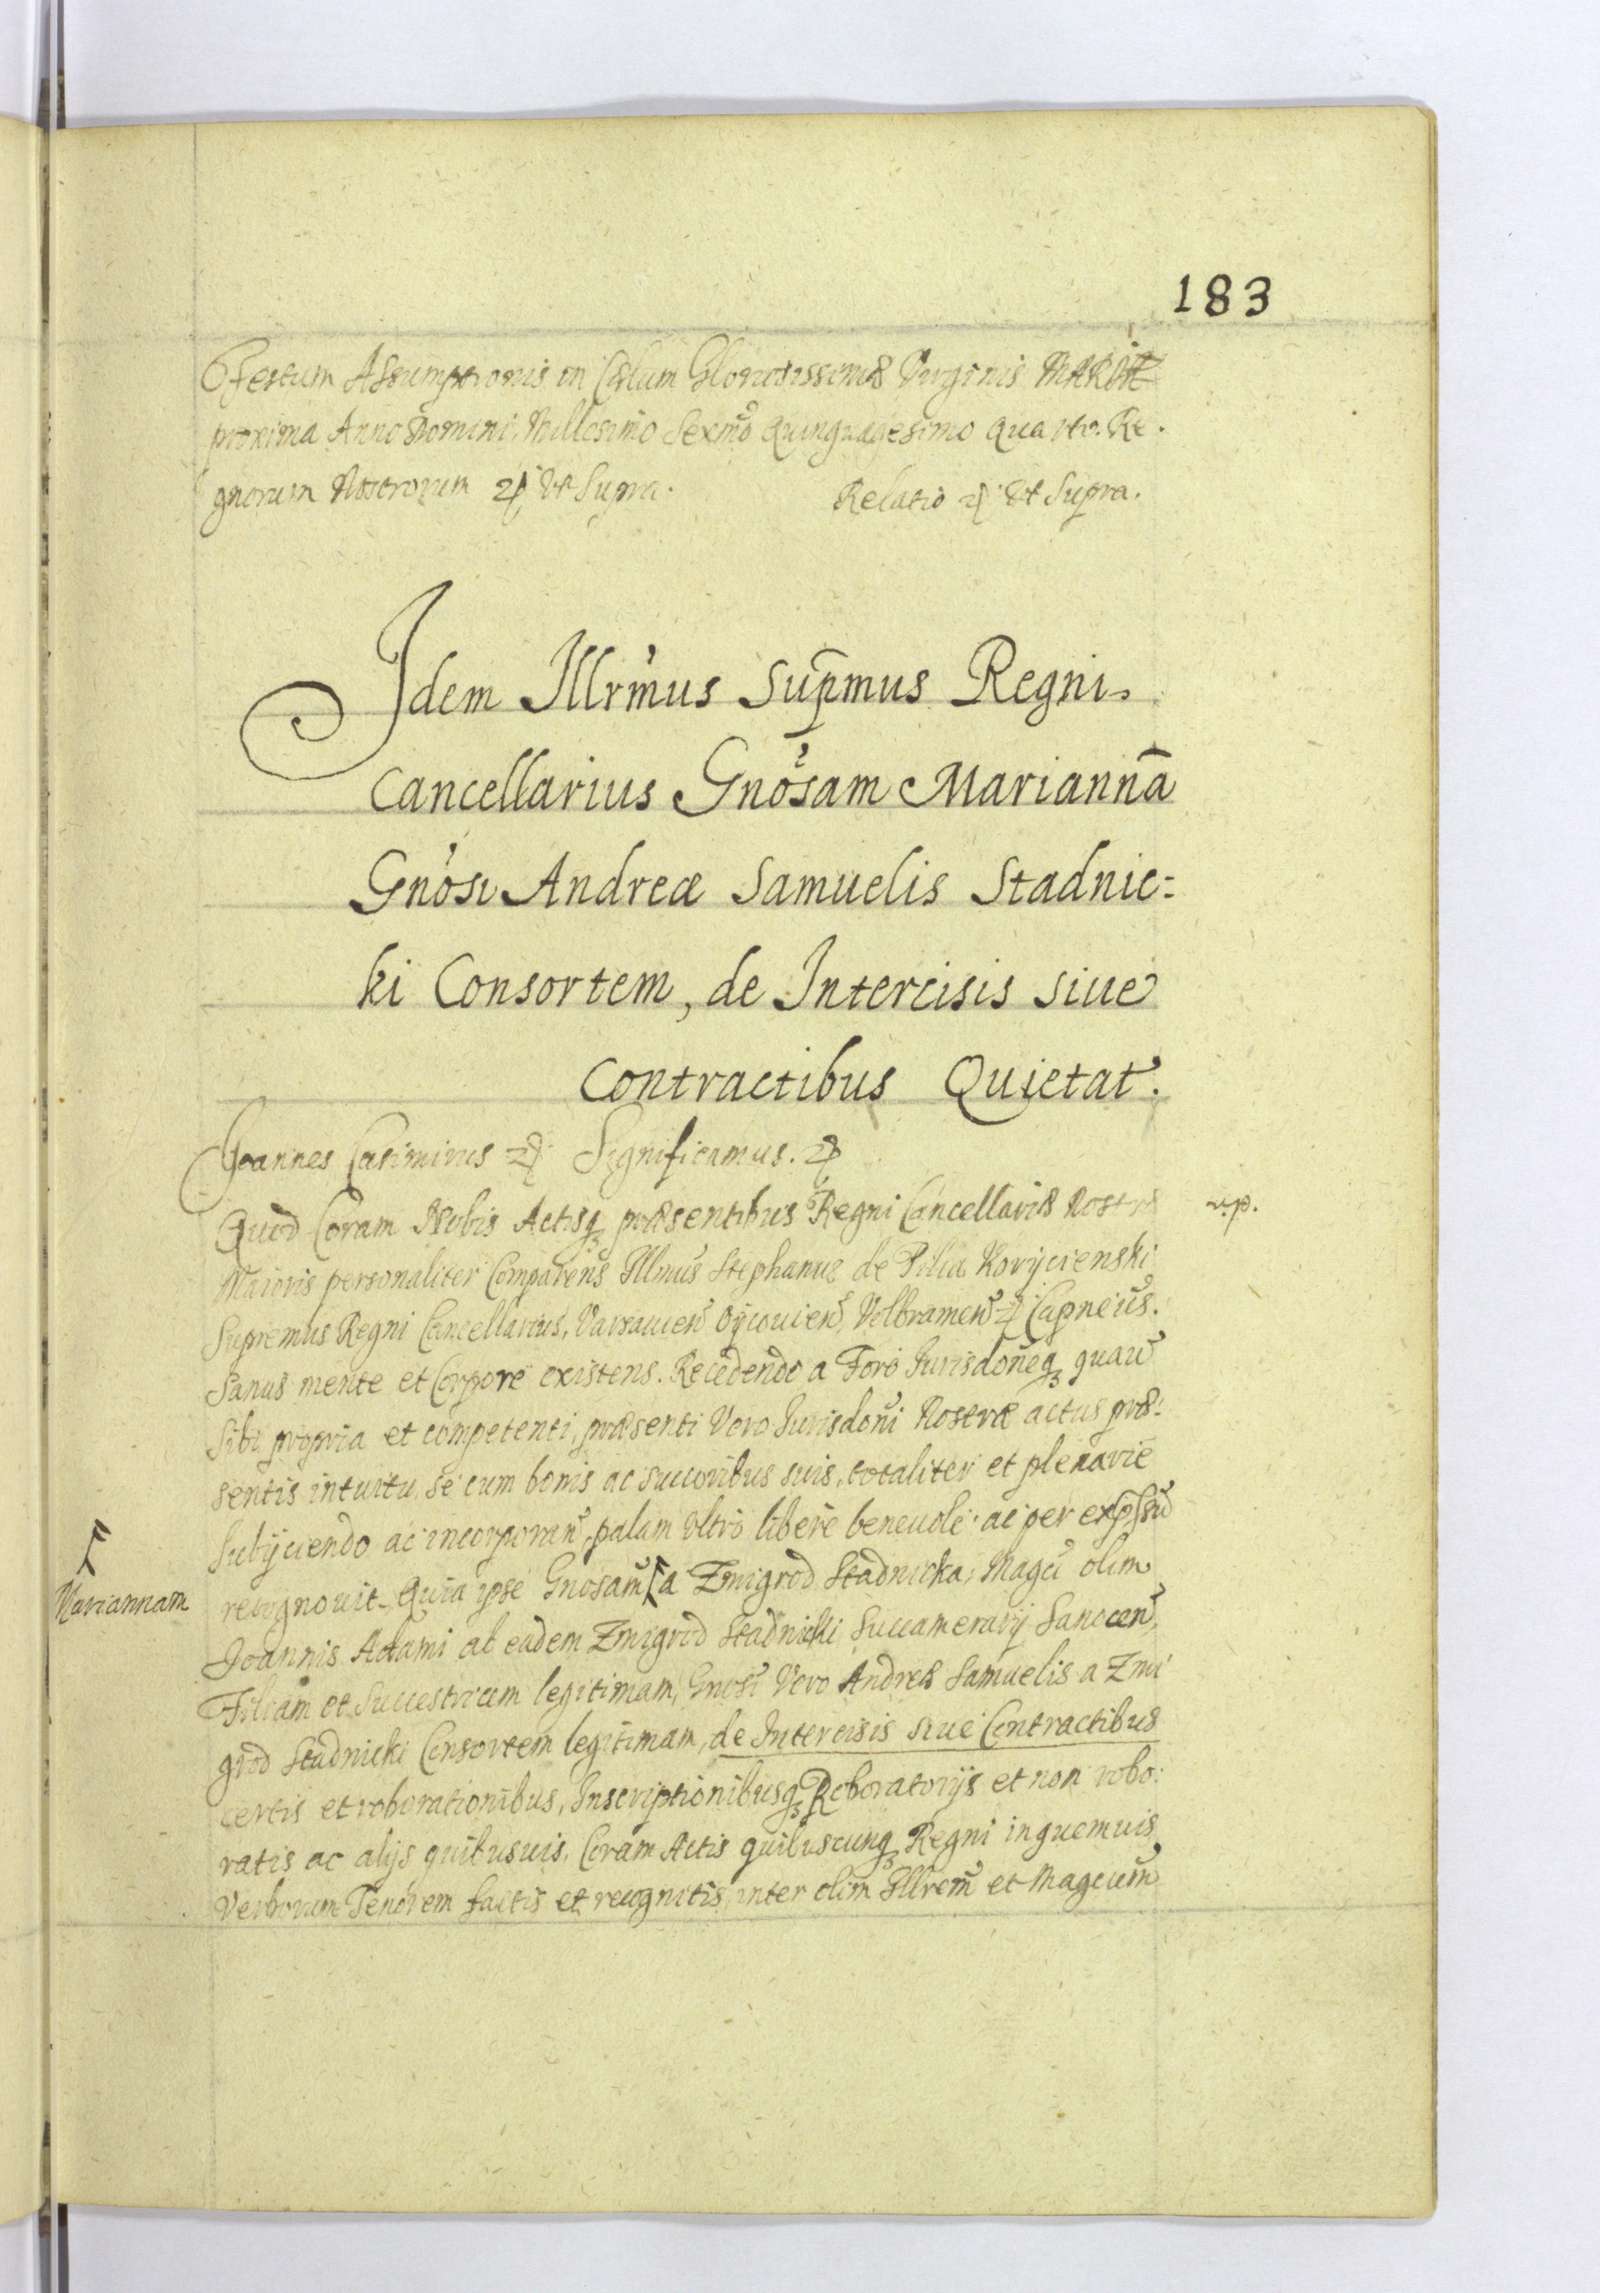 183
Festum Assumptionis in Cælum Gloriosissimæ Virginis MARIÆ
proxima Anno Domini Millesimo Sexmo Quinquagesimo Quarto. Re-
gnorum Nostrorum &c Vt Supra. Relatio &c Vt Supra.
Idem Illrmus Supmus Regni
Cancellarius Gnosam Mariannā
Gnosi Andreæ Samuelis Stadnic=
ki Consortem, de Intercisis siue
Contractibus Quietat.
Joannes Casimirus &c Significamus. &c
Quod Coram Nobis Actisq præsentibus Regni Cancellariæ Nostræ
Maioris personaliter Comparens Illmus Stephanus de Pilca Korycienski
Supremus Regni Cancellarius, Varsauien Oycouien Volbramen &c Capneus.
Sanus mente et Corpore existens. Recedendo a Foro Jurisdoneq quauis
Sibi propria et competenti, præsenti Vero Jurisdoni Nostræ actus præ:
sentis intuitu, se cum bonis ac succoribus suis, totaliter et plenarie
Subijciendo ac incorporan, palam Vltro libere beneuole ac per expssu
recognouit. Quia ipse Gnosam a Zmigrod Stadnicka, Magci olim
Mariannam
Joannis Adami ab eadem Zmigrod Stadnicki Succamerarij Sanocen,
Filiam et Successricem legitimam, Gnosi Vero Andreæ Samuelis a Zmi
grod Stadnicki Consortem legitimam, de Intercisis siue Contractibus
certis et roborationibus, Inscriptionibusq Roboratorijs et non robo:
ratis ac alijs quibusuis, Coram Actis quibuscunq Regni inquemuis
Verborum Tenorem factis et recognitis inter olim Illrem et Magcum